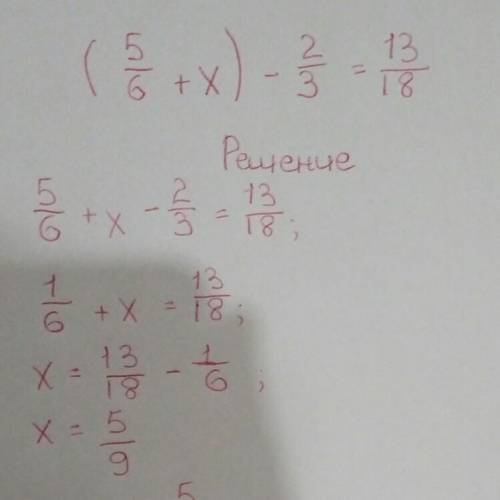 (5/6 + x) - 2/3 = 13/18
Решение
5/6 + x - 2/3 = 13/18;
1/6 + x = 13/18;
x = 13/18 - 1/6;
x = 5/9
5